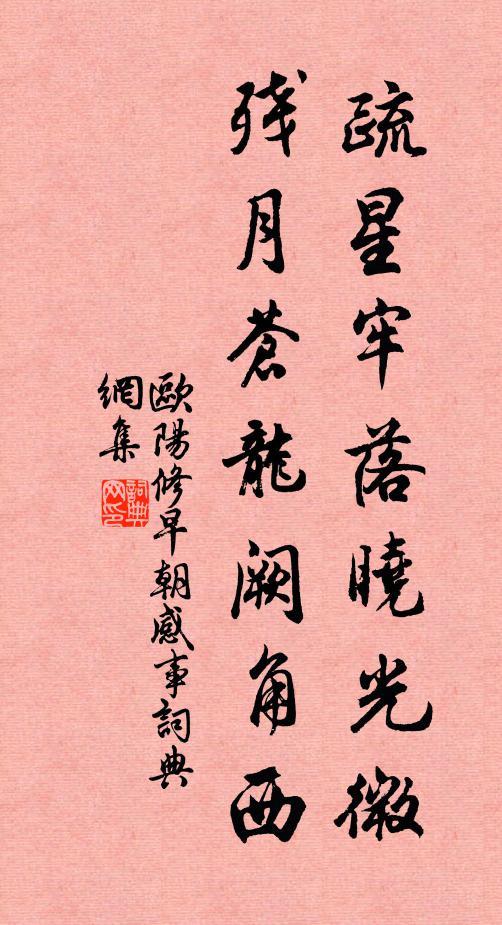 疏星牢落曉光微
残月蒼龍阙角西
歐陽修早朝感事詞典
網集
詞典
网印